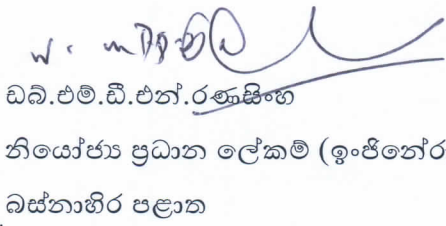 ඩබ්.එම්.ඩී.එන්.රණසිංහ
නියෝජ්‍ය ප්‍රධාන ලේකම් (ඉංජිනේර
බස්නාහිර පළාත